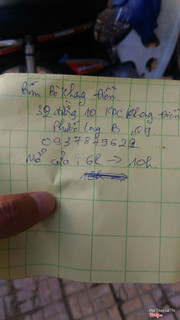 Bún Bò Khang Điền
39 đường 10 KDC Khang Điền
Phước Long B, Q9
0937879629
Mở cửa : 6h → 10h